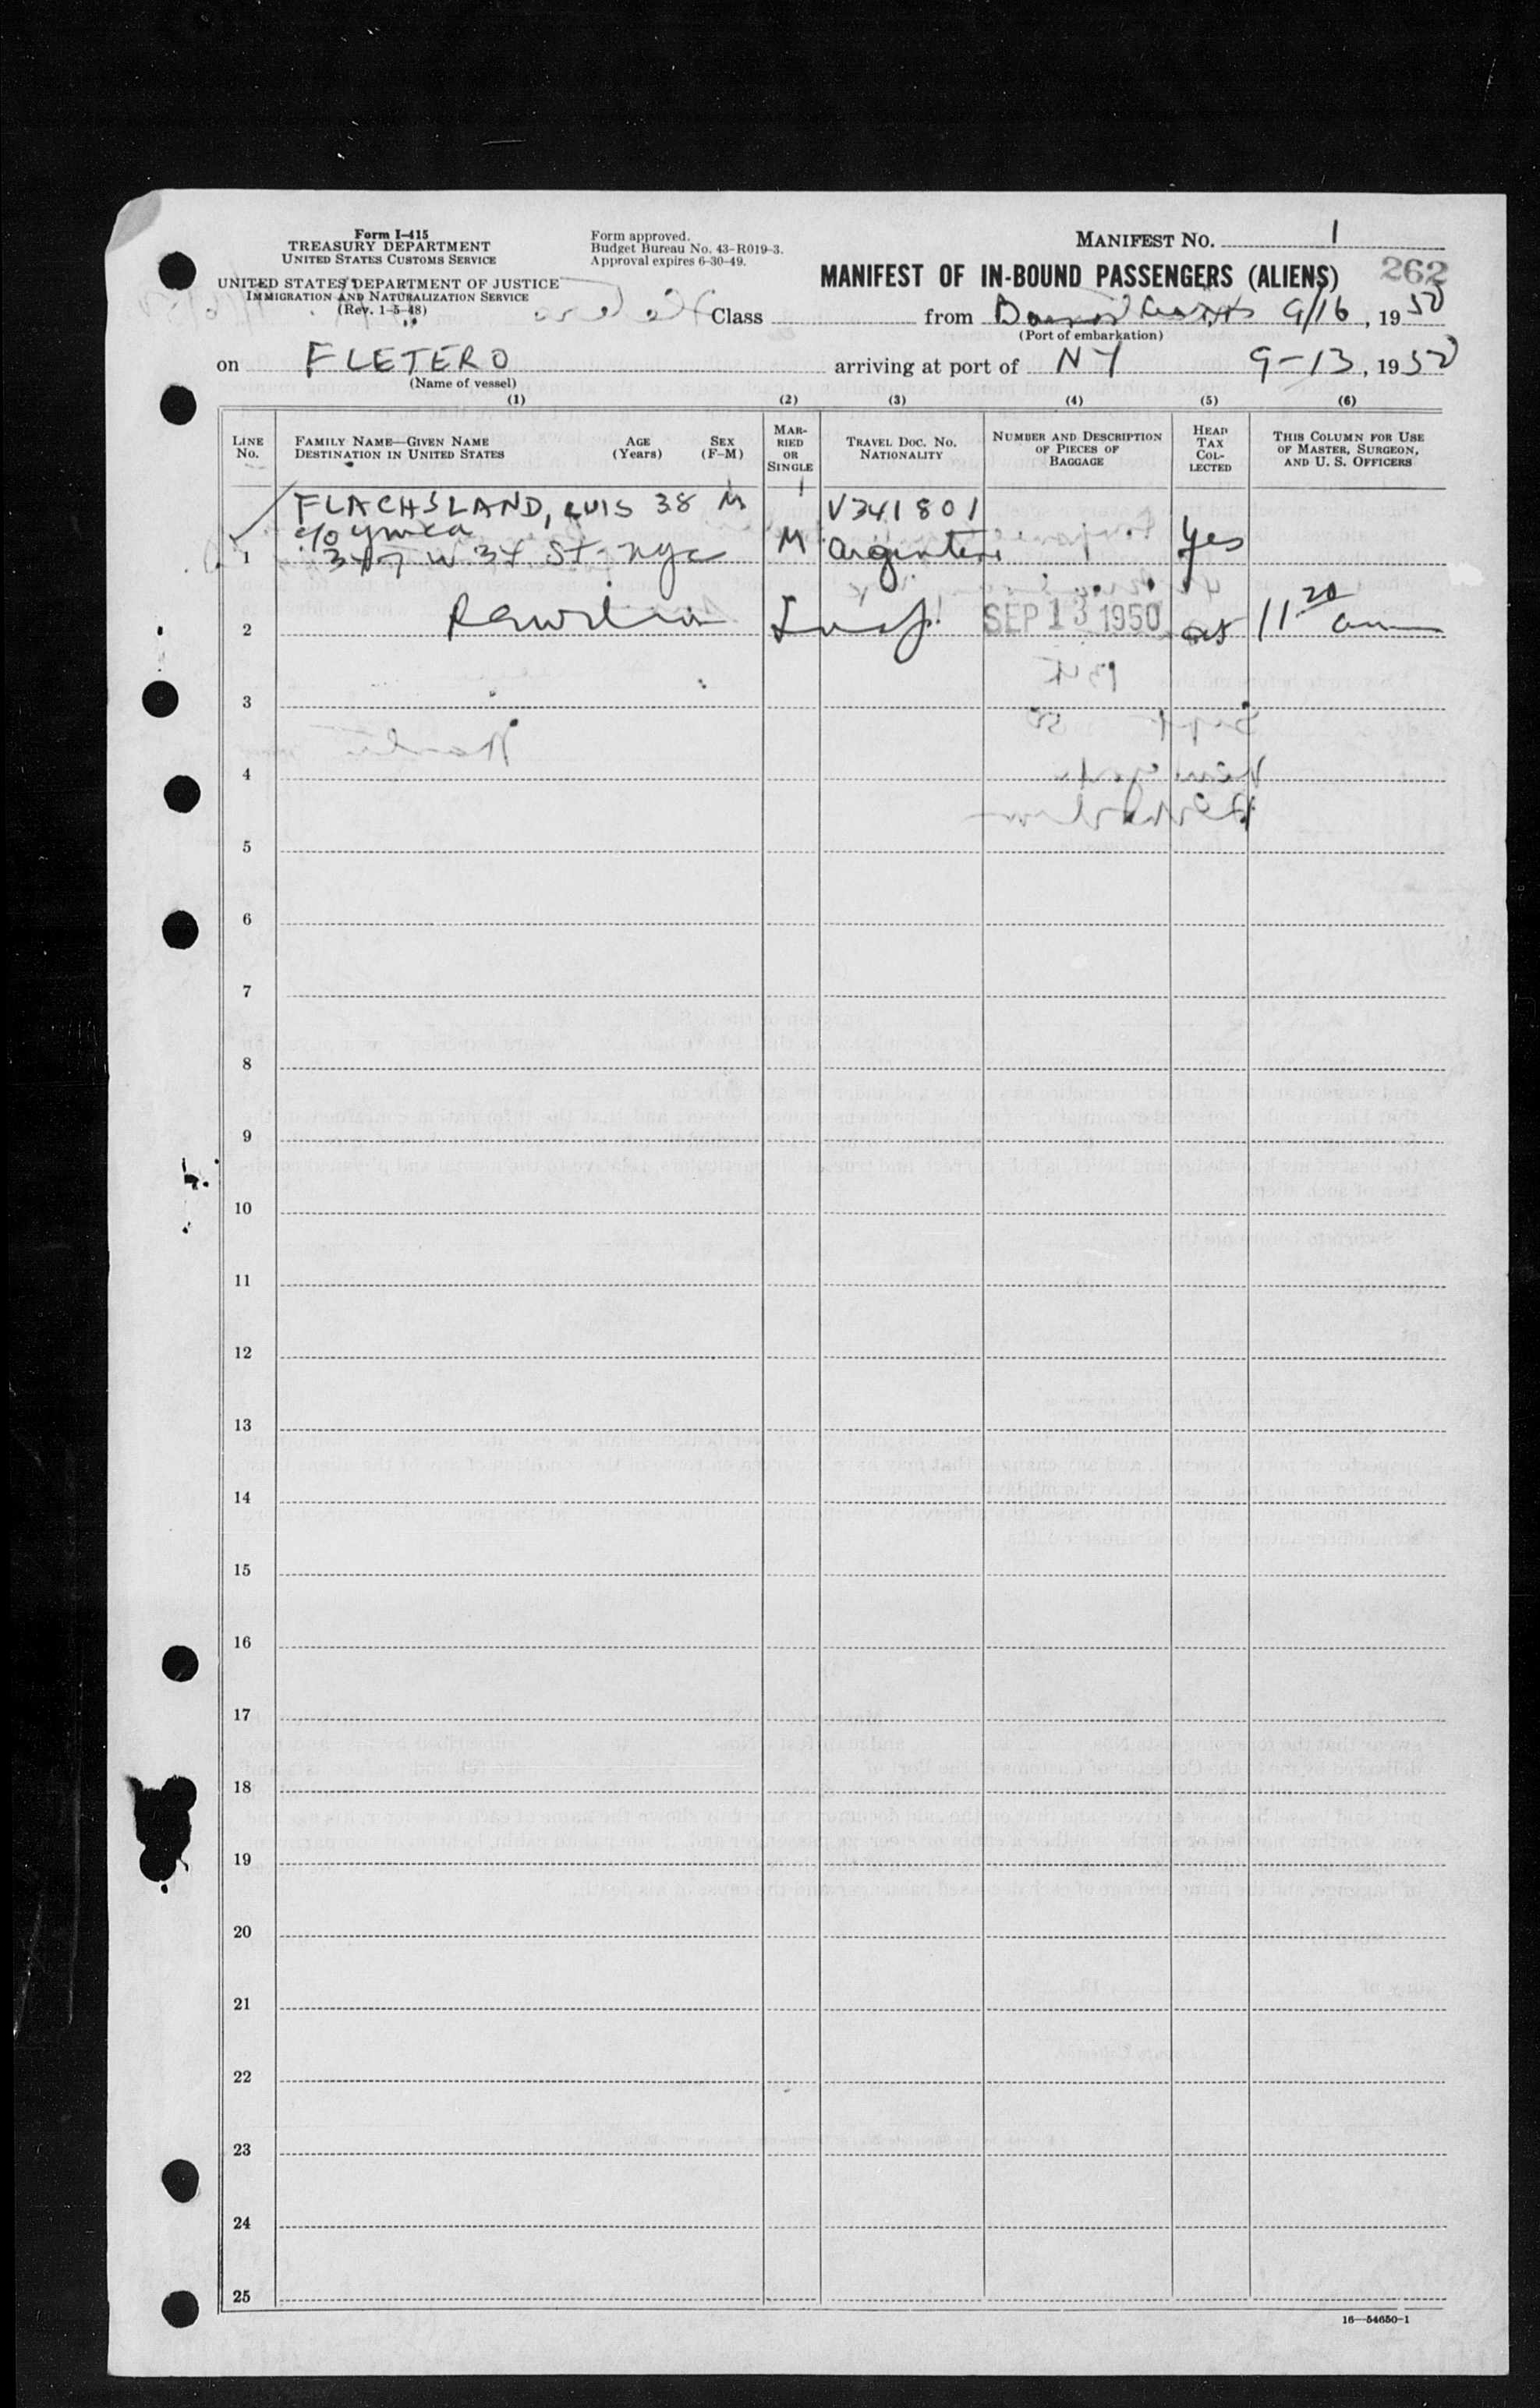 Form I-415
TREASURY DEPARTMENT
UNITED STATES CUSTOMS SERVICE
UNITED STATES DEPARTMENT OF JUSTICE
IMMIGRATION AND NATURALIZATION SERVICE
(Rev. 1-5-48)
Form approved.
Budget Bureau No. 43-R019-3.
Approval expires 6-30-49.
MANIFEST NO. 1
MANIFEST OF IN-BOUND PASSENGERS (ALIENS) 262
Class from 9/16, 1950
(Port of embarkation)
on FLETERO arriving at port of NY 9-13, 1950
(Name of vessel)
(1) (2) (3) (4) (5) (6)
LINE NO.
FAMILY NAME—GIVEN NAME
DESTINATION IN UNITED STATES
AGE (Years)
SEX (F-M)
MARRIED OR SINGLE
TRAVEL DOC. NO.
NATIONALITY
NUMBER AND DESCRIPTION OF PIECES OF BAGGAGE
HEAD TAX COLLECTED
THIS COLUMN FOR USE OF MASTER, SURGEON, AND U. S. OFFICERS
FLACHSLAND, LUIS 38 M V341801
c/o ymca
1 347 W 34 St. nyc M Argentine Yes
2 Insp! SEP 13 1950 at 11 20 am
3
4
5
6
7
8
9
10
11
12
13
14
15
16
17
18
19
20
21
22
23
24
25
16—54650-1